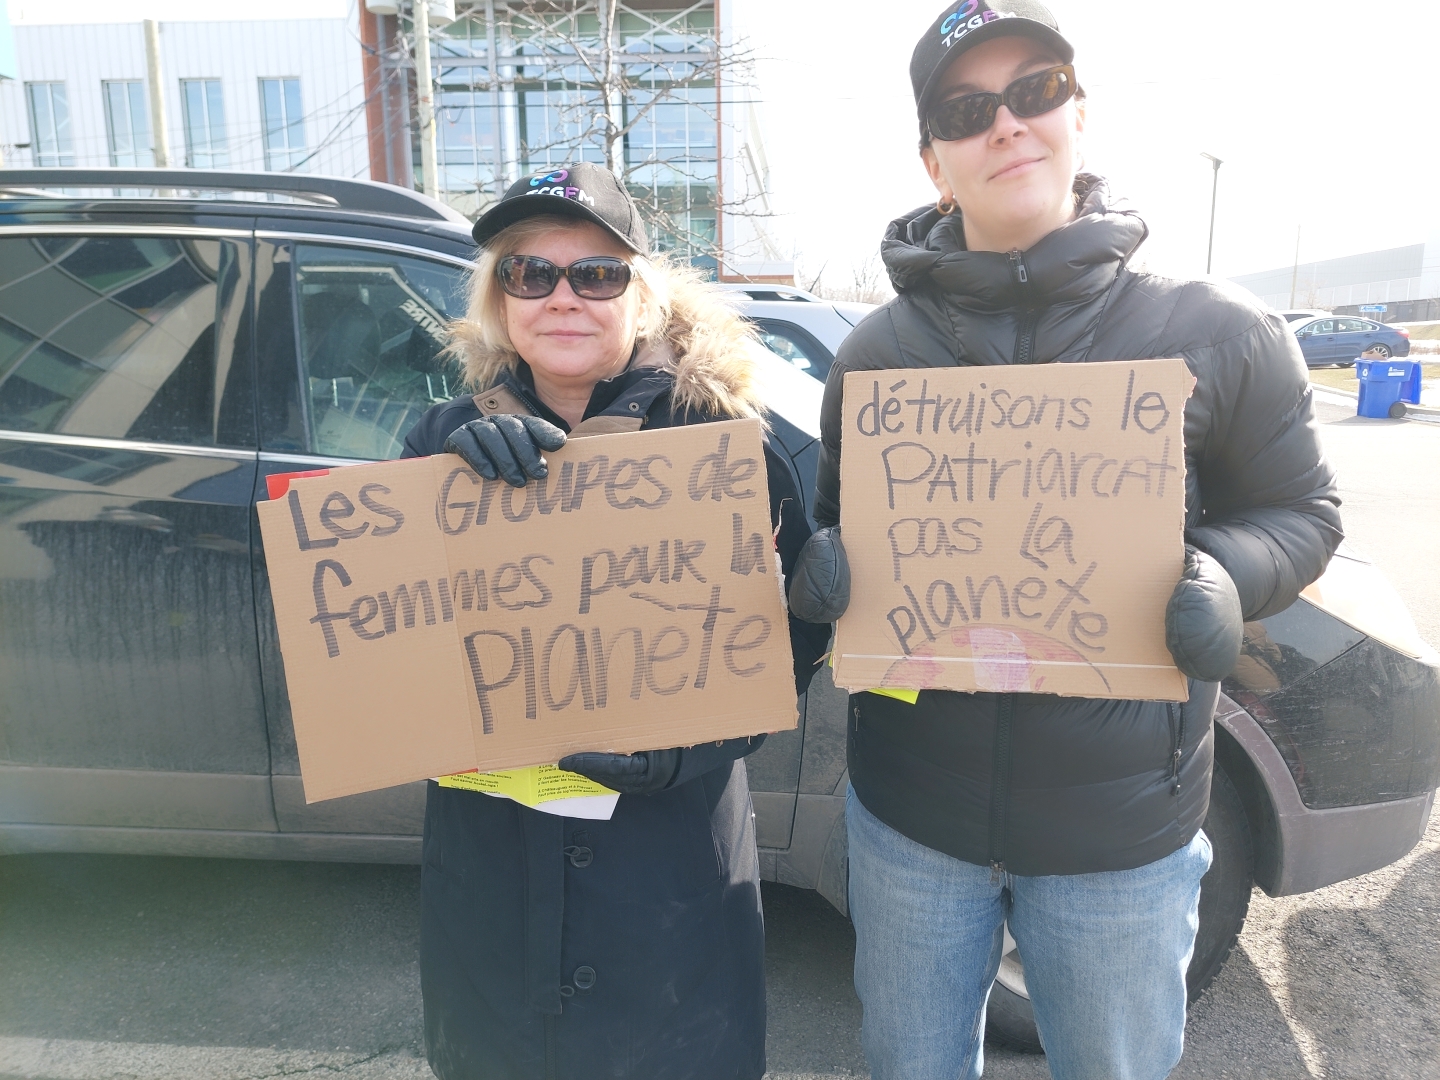 TCGEM
TCGEM
Les Groupes de
femmes pour la
Planète
détruisons le
PATriarcAT
pas la
planète